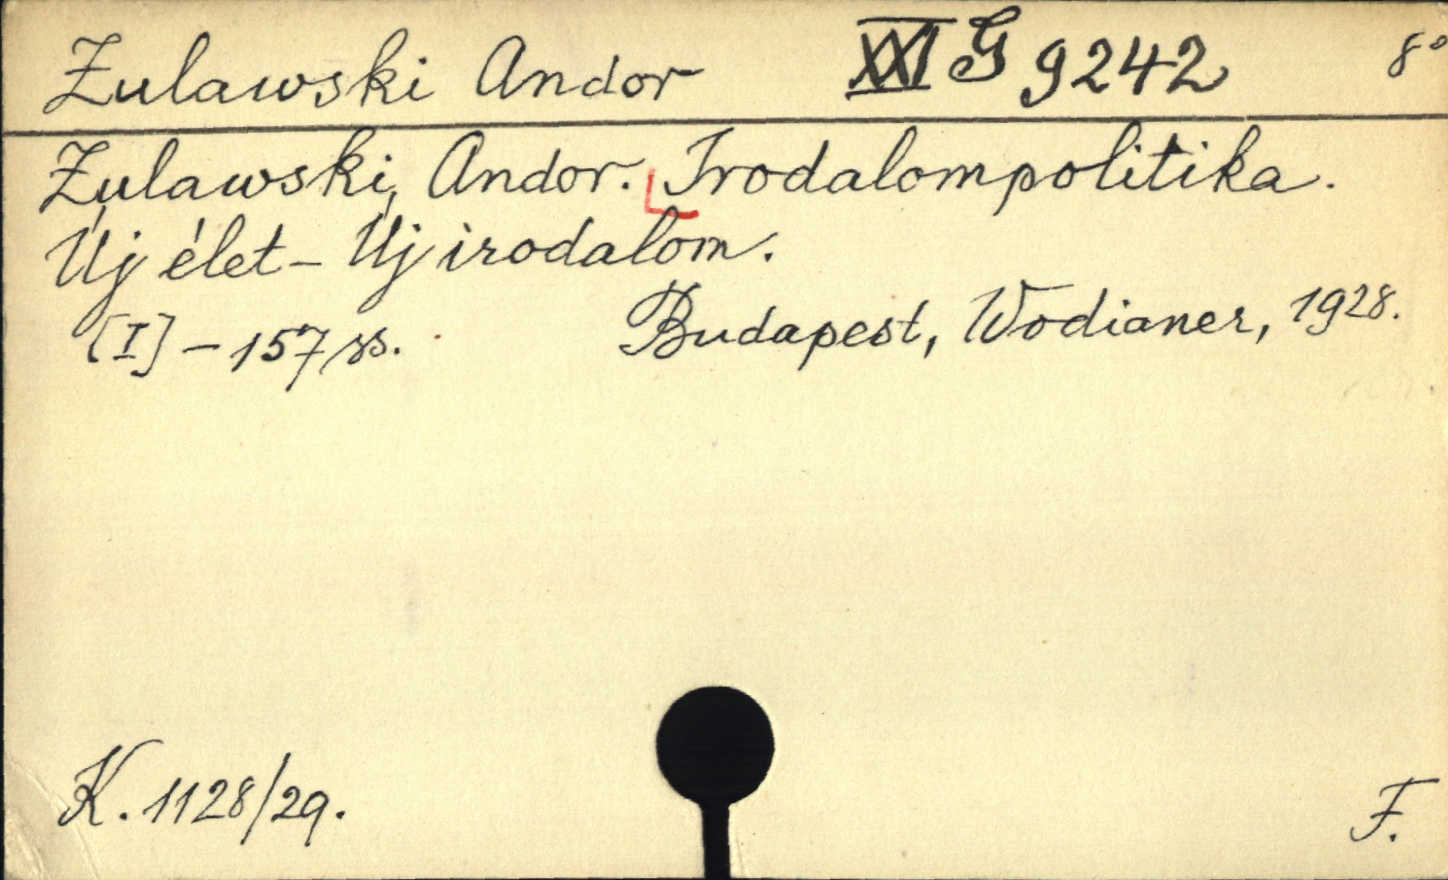 Zulawski Andor XXI G 9242 8°
Zulawski, Andor. Irodalompolitika.
Új élet – Új irodalom.
[I] – 157 ss. Budapest, Wodianer, 1928.
K. 1128/29. F.